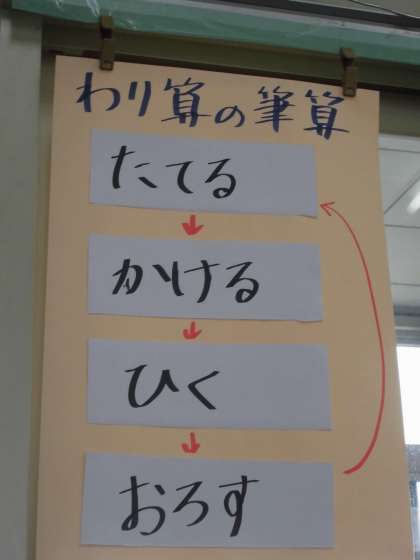 わり算の筆算
たてる
かける
ひく
おろす